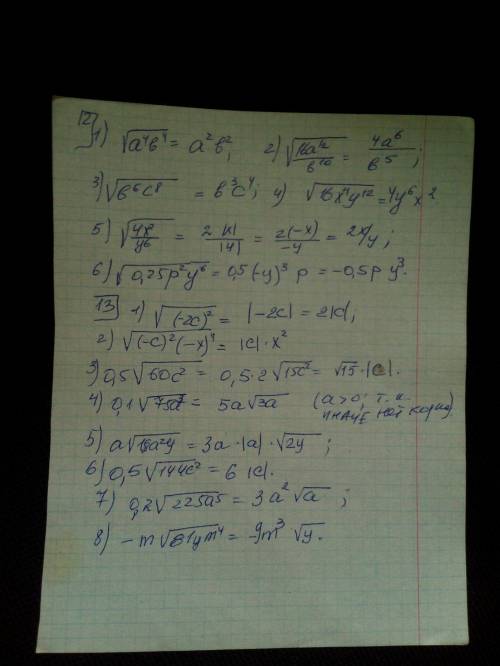 12) 1) √(a⁴b⁴) = a²b²; 2) √(16a¹²/b¹⁰) = 4a⁶/b⁵;
3) √(b⁶c⁸) = b³c⁴; 4) √(16x⁴y¹²) = 4y⁶x²
5) √(4x²/y⁶) = 2|x|/|y| = 2(-x)/-y = 2x/y;
6) √(0,25p²y⁶) = 0,5(-y)³ p = -0,5p y³.
13 1) √((-2c)²) = |-2c| = 2|c|;
2) √((-c)²(-x)⁴) = |c|·x²
3) 0,5√(60c²) = 0,5·2√(15c²) = √15·|c|.
4) 0,1√(75a³) = 5a√3a (a>0; т.к. иначе нет корня).
5) a√(18a²y) = 3a·|a|·√2y;
6) 0,5√(144c²) = 6|c|.
7) 0,2√(225a⁵) = 3a²√a;
8) -m√(81ym⁴) = -9m³√y.